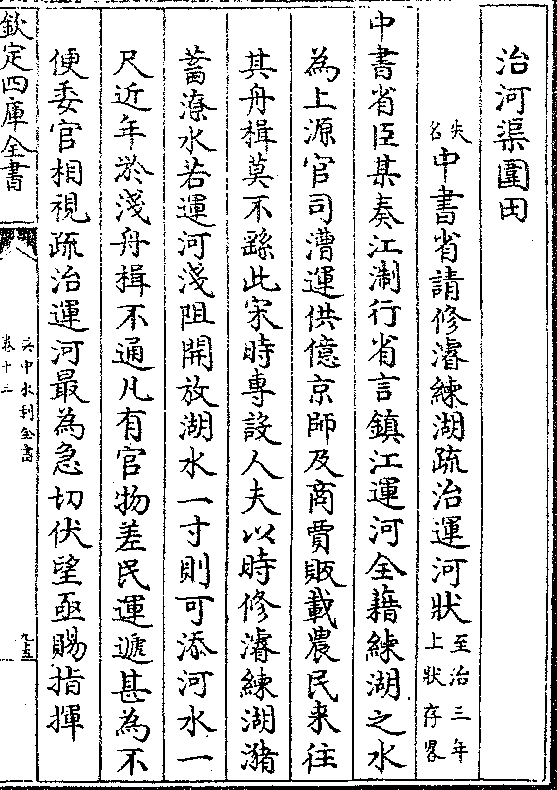 治河渠圍田
失名中書省請修濬練湖疏治運河狀至治三年上狀存畧
中書省臣某奏江淛行省言鎮江運河全藉練湖之水
為上源官司漕運供億京師及商賈販載農民来往
其舟楫莫不繇此宋時專設人夫以時修濬練湖瀦
蓄潦水若運河淺阻開放湖水一寸則可添河水一
尺近年淤淺舟楫不通凡有官物差民運遞甚為不
便委官相視疏治運河最為急切伏望亟賜指揮
欽定四庫全書
吳中水利全書
卷十三